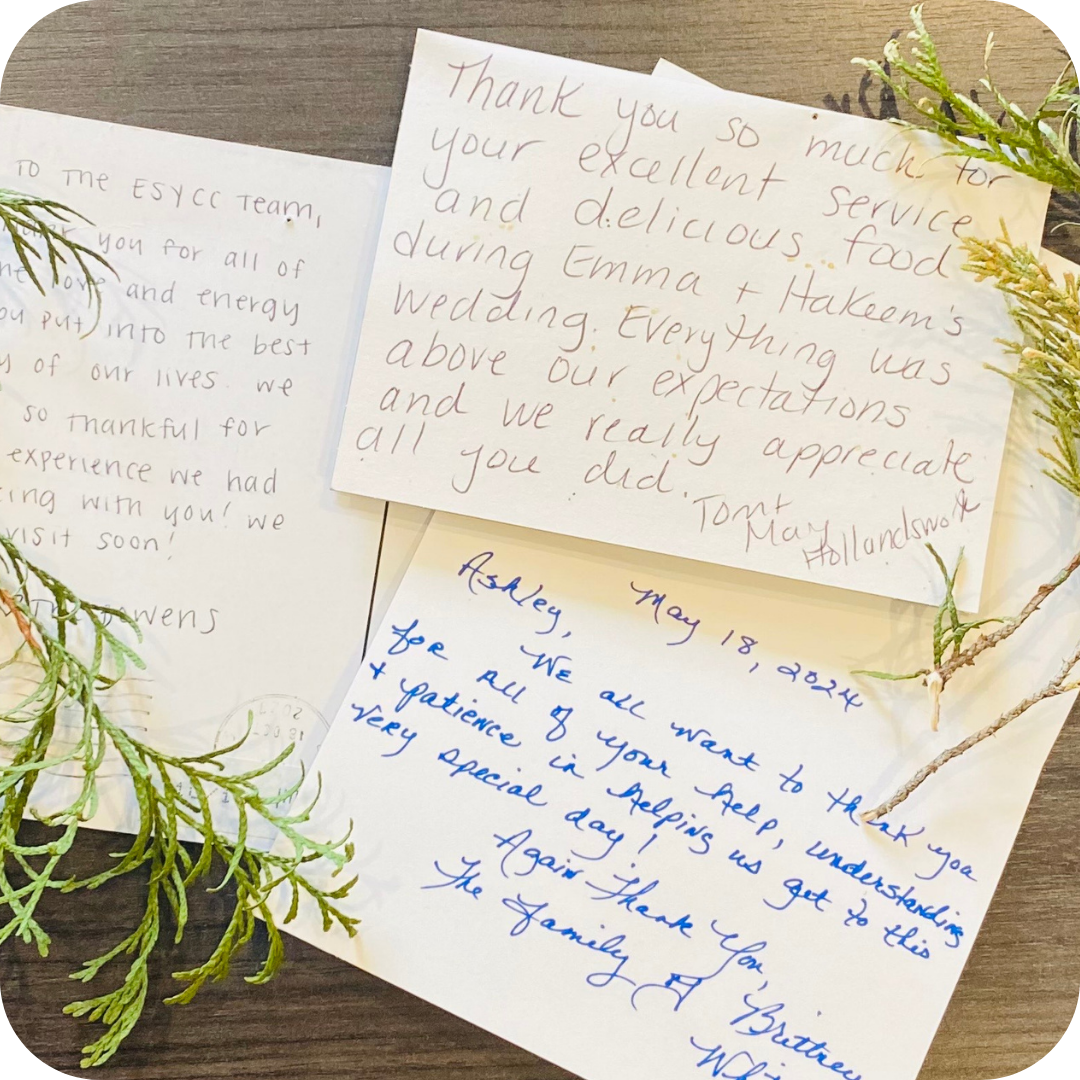 TO THE ESYCC TEAM,
you for all of
love and energy
you put into the best
of our lives. we
so thankful for
experience we had
with you! we
visit soon!
Owens
Thank you so much for
your excellent service
and delicious food
during Emma + Hakeem's
wedding. Everything was
above our expectations
and we really appreciate
all you did.
Tom +
May
Hollandsworth
Ashley, May 18, 2024
We all want to thank you
for all of your help, understanding
+ patience in helping us get to this
very special day!
Again Thank You,
The family of Brittney